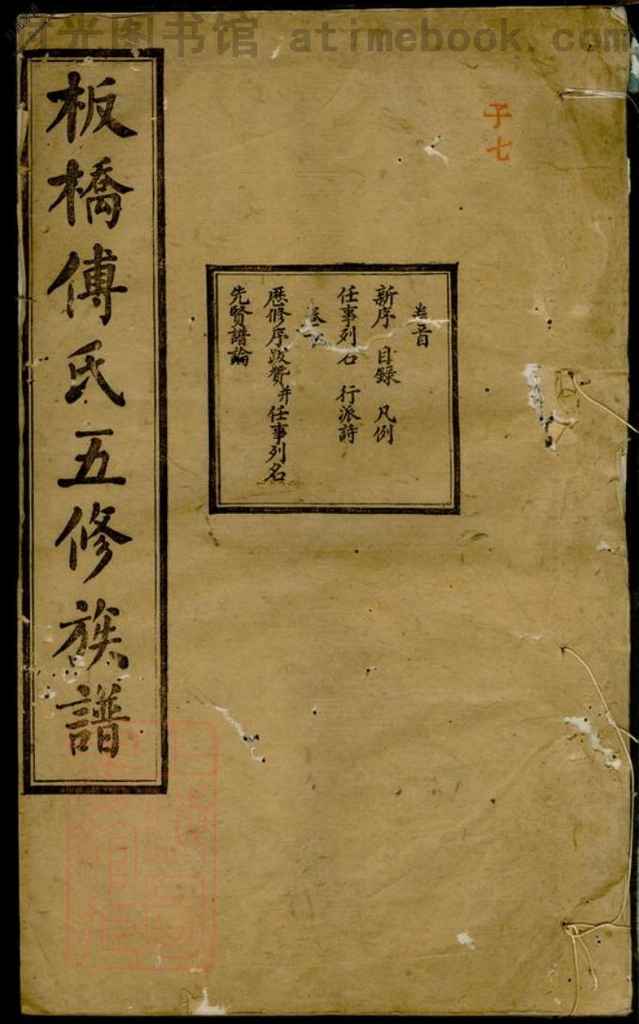 时光图书馆 atimebook.com
板橋傅氏五修族譜
子七
卷首
新序 目錄 凡例
任事列名 行派詩
卷一
歷修序跋贊并任事列名
先賢譜論